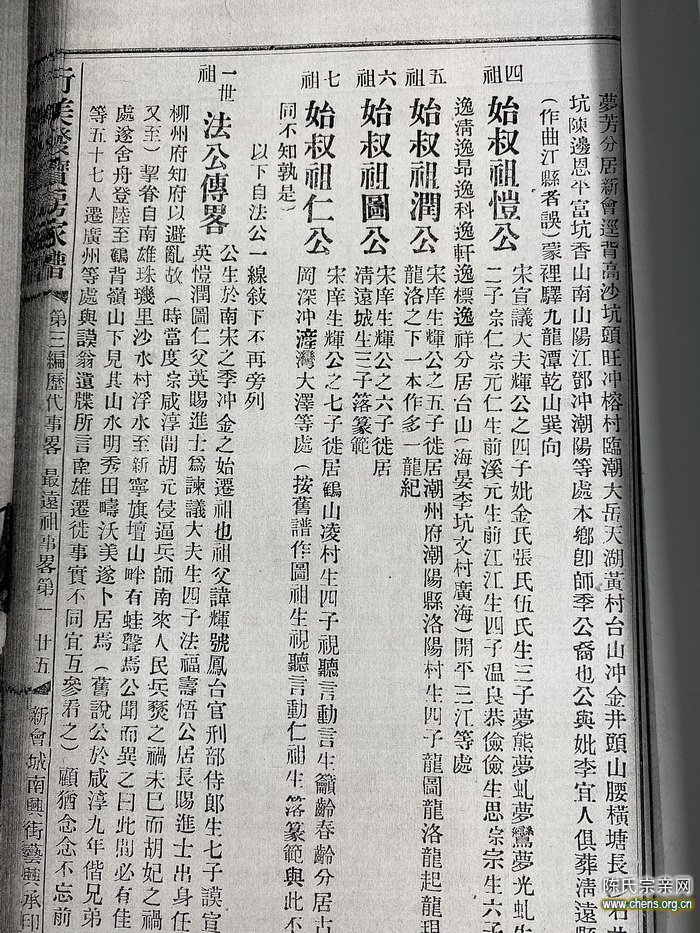 夢芳分居新會逕背高沙坑頭旺冲榕村臨潮大岳天湖黃村台山冲金井頭山腰橫塘長
坑陳邊恩平富坑香山南山陽江鄧冲潮陽等處本鄉卽師季公裔也公與妣李宜人俱葬淸遠縣
(作曲江縣者誤)豪裡驛九龍潭乾山巽向
四
祖
始叔祖愷公
宋宣議大夫輝公之四子妣金氏張氏伍氏生三子夢熊夢虬夢鸞夢光虬生
二子宗仁宗元仁生前溪元生前江江生四子温良恭儉儉生思宗宗生六子
逸淸逸昻逸科逸軒逸標逸祥分居台山(海晏李坑文村廣海)開平三江等處
五
祖
始叔祖潤公
宋庠生輝公之五子徙居潮州府潮陽縣洛陽村生四子龍圖龍洛龍起龍現
龍洛之下一本作多一龍紀
六
祖
始叔祖圖公
宋庠生輝公之六子徙居
淸遠城生三子落篆範
七
祖
始叔祖仁公
宋庠生輝公之七子徙居鶴山凌村生四子視聽言動言生籲齡春齡分居古
岡深冲灣大澤等處(按舊譜作圖祖生視聽言動仁祖生落篆範與此不
同不知孰是)
以下自法公一線敍下不再旁列
一世
祖
法公傳畧
公生於南宋之季冲金之始遷祖也祖父諱輝號鳳台官刑部侍郎生七子謨宣
英愷潤圖仁父英賜進士爲諫議大夫生四子法福壽悟公居長賜進士出身任
柳州府知府以避亂故(時當度宗咸淳間胡元侵逼兵師南來人民兵燹之禍未已而胡妃之禍
又至)挈眷自南雄珠璣里沙水村浮水至新寧旗壇山畔有蛙聲焉公聞而異之曰此間必有佳
處遂舍舟登陸至鶴背嶺山下見其山水明秀田疇沃美遂卜居焉(舊說公於咸淳九年偕兄弟
等五十七人遷廣州等處與謨翁遺牒所言南雄遷徙事實不同宜互參看之)顧猶念念不忘前
家譜
第三編歷代事畧
最遠祖事畧第一
廿五
新會城南興街藝興承印
陳氏宗亲网
www.chens.org.cn